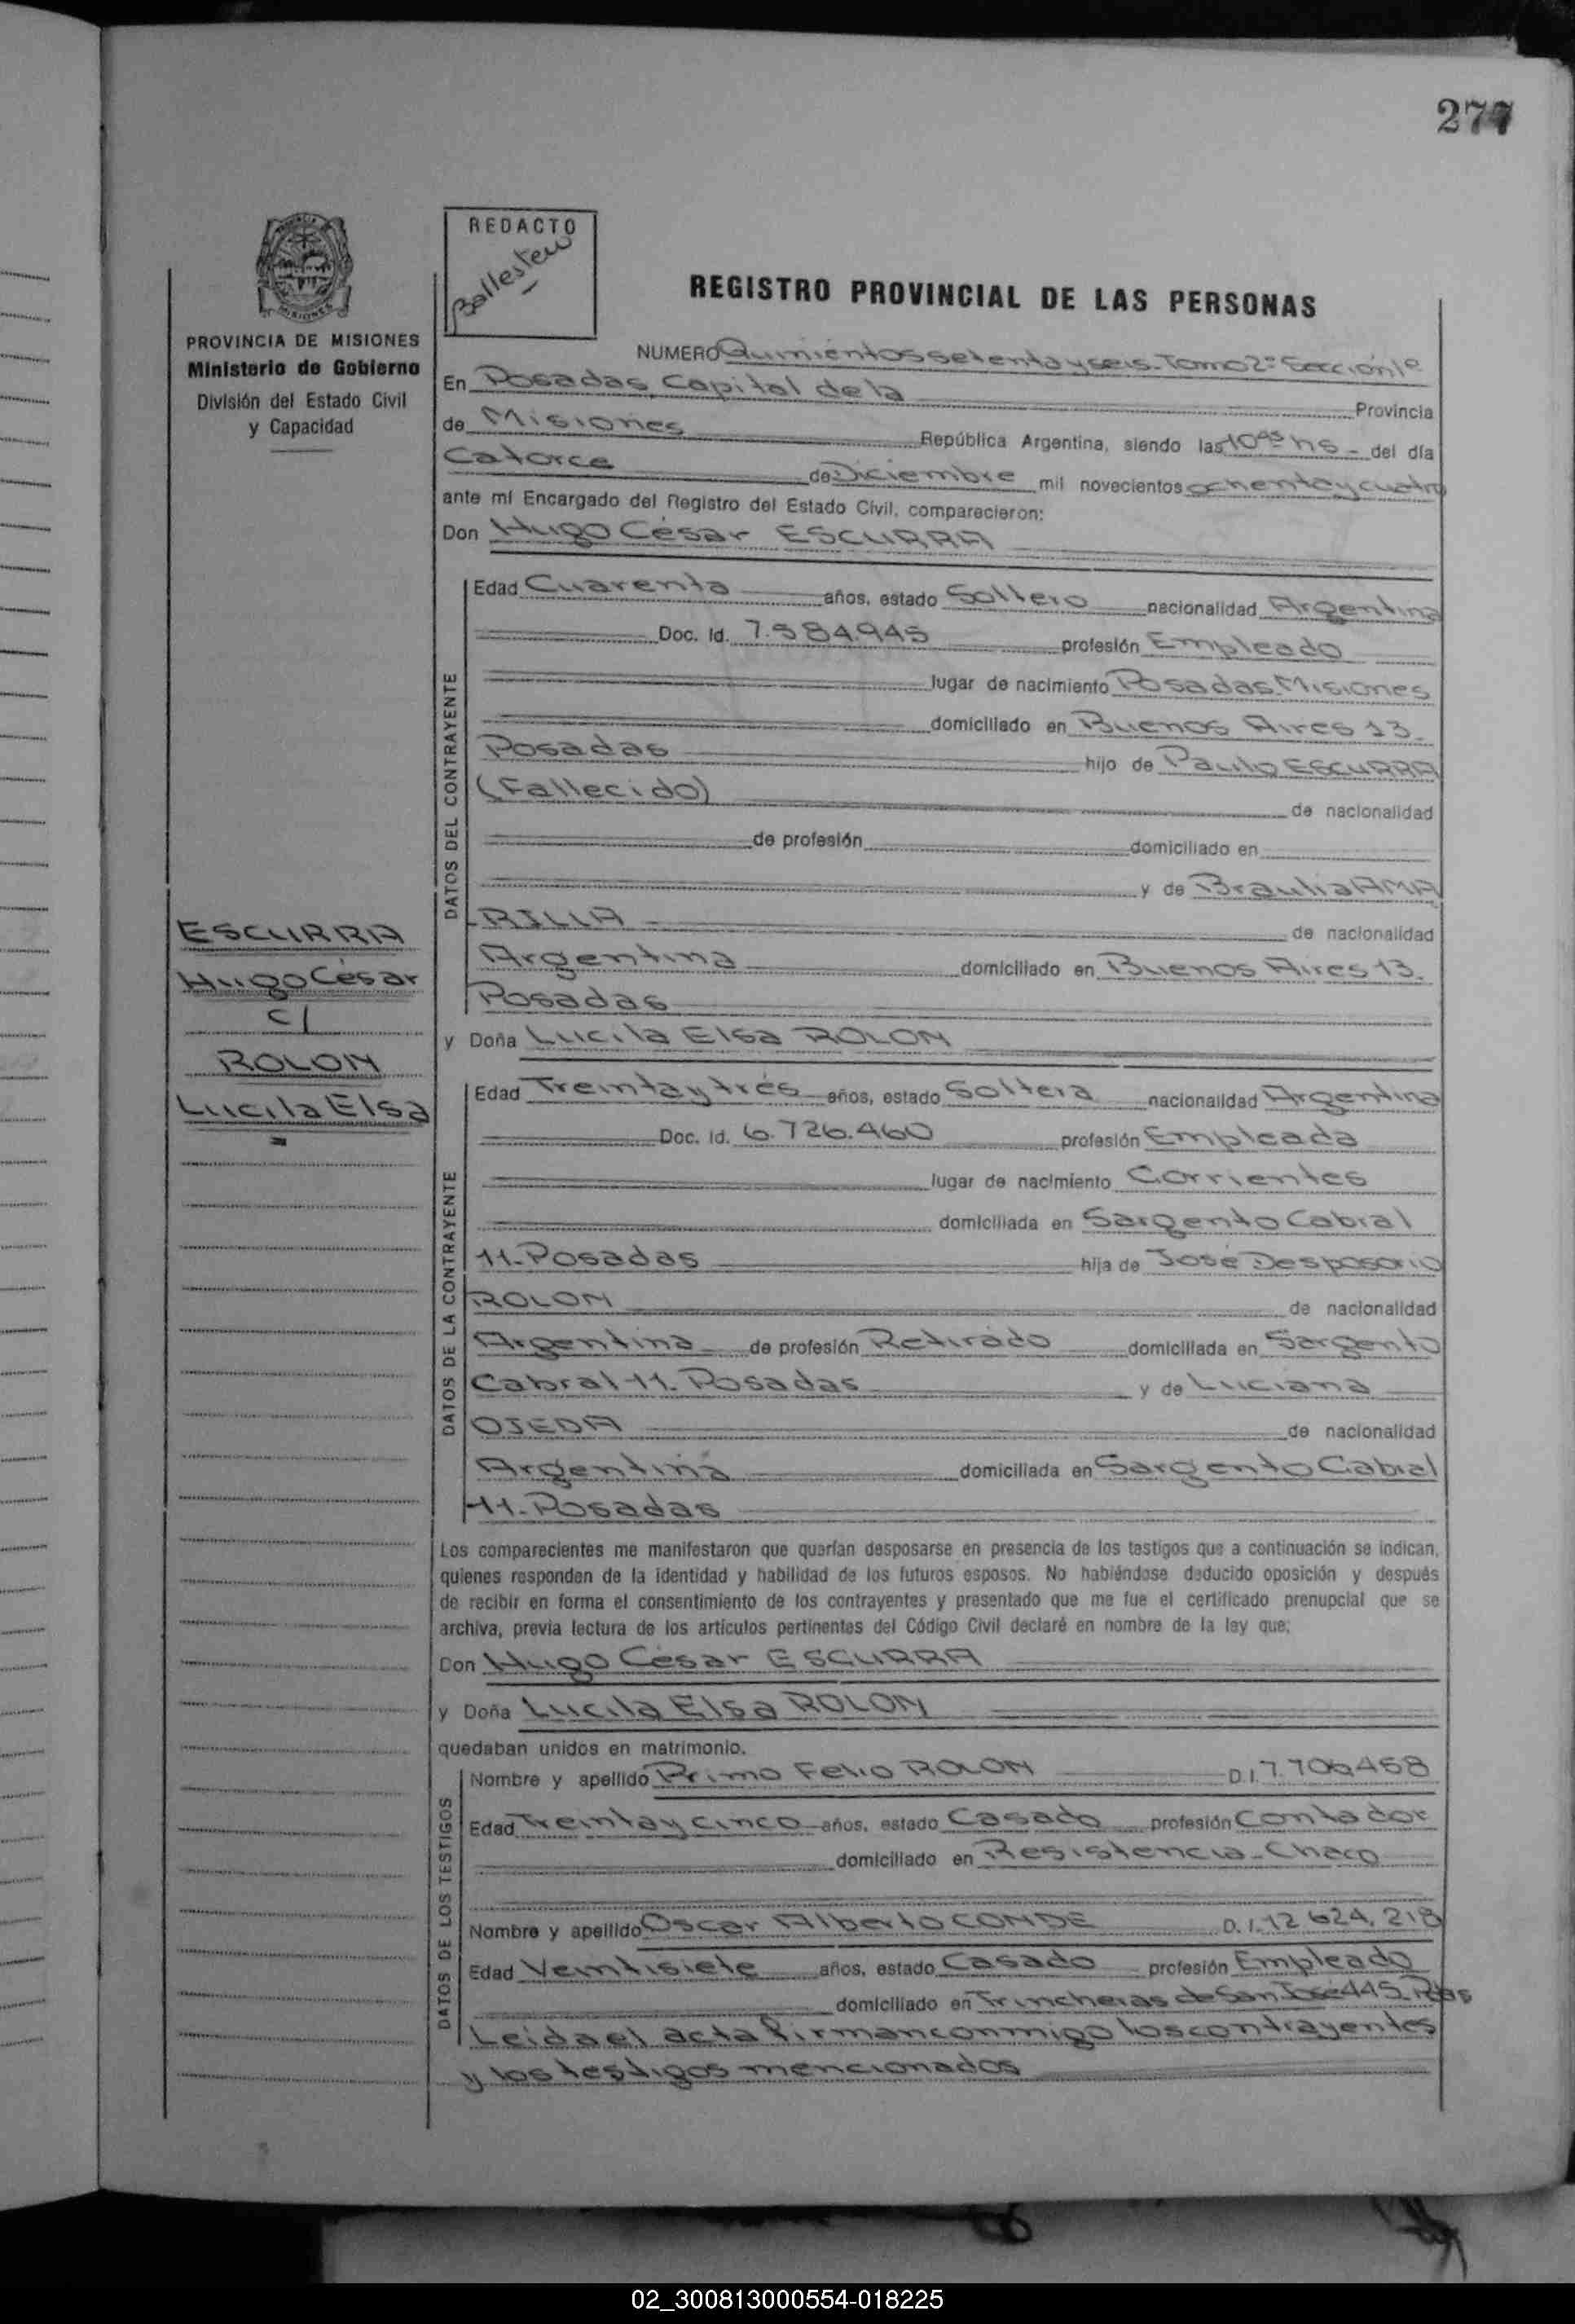 277
REDACTO
Ballesteu
REGISTRO PROVINCIAL DE LAS PERSONAS
PROVINCIA DE MISIONES
Ministerio de Gobierno
División del Estado Civil
y Capacidad
NUMERO Quinientos setenta y seis. Tomo 2º Sección 1º
En Posadas, Capital de la Provincia
de Misiones República Argentina, siendo las 10,45 hs - del día
Catorce de Diciembre mil novecientos ochenta y cuatro
ante mí Encargado del Registro del Estado Civil, comparecieron:
Don Hugo César ESCURRA
DATOS DEL CONTRAYENTE
Edad Cuarenta años, estado Soltero nacionalidad Argentina
Doc. Id. 7.584.945 profesión Empleado
lugar de nacimiento Posadas. Misiones
domiciliado en Buenos Aires 13.
Posadas hijo de Paulo ESCURRA
(Fallecido) de nacionalidad
de profesión domiciliado en
y de Braulia AMA
RILLA de nacionalidad
Argentina domiciliado en Buenos Aires 13.
Posadas
ESCURRA
Hugo César
c/
ROLON
Lucila Elsa
y Doña Lucila Elsa ROLON
DATOS DE LA CONTRAYENTE
Edad Treinta y trés años, estado Soltera nacionalidad Argentina
Doc. Id. 6.726.460 profesión Empleada
lugar de nacimiento Corrientes
domiciliada en Sargento Cabral
11. Posadas hija de José Desposorio
ROLON de nacionalidad
Argentina de profesión Retirado domiciliada en Sargento
Cabral 11. Posadas y de Luciana
OJEDA de nacionalidad
Argentina domiciliada en Sargento Cabral
11. Posadas
Los comparecientes me manifestaron que querían desposarse en presencia de los testigos que a continuación se indican,
quienes responden de la identidad y habilidad de los futuros esposos. No habiéndose deducido oposición y después
de recibir en forma el consentimiento de los contrayentes y presentado que me fue el certificado prenupcial que se
archiva, previa lectura de los artículos pertinentes del Código Civil declaré en nombre de la ley que:
Don Hugo César ESCURRA
y Doña Lucila Elsa ROLON
quedaban unidos en matrimonio.
DATOS DE LOS TESTIGOS
Nombre y apellido Primo Felio ROLON D.I. 7.706458
Edad Treinta y cinco años, estado Casado profesión Contador
domiciliado en Resistencia - Chaco
Nombre y apellido Oscar Alberto CONDE D.I. 12 624.218
Edad Veintisiete años, estado Casado profesión Empleado
domiciliado en Trincheras de San José 445 Pdas
Leida el acta firman conmigo los contrayentes
y los testigos mencionados
02_300813000554-018225